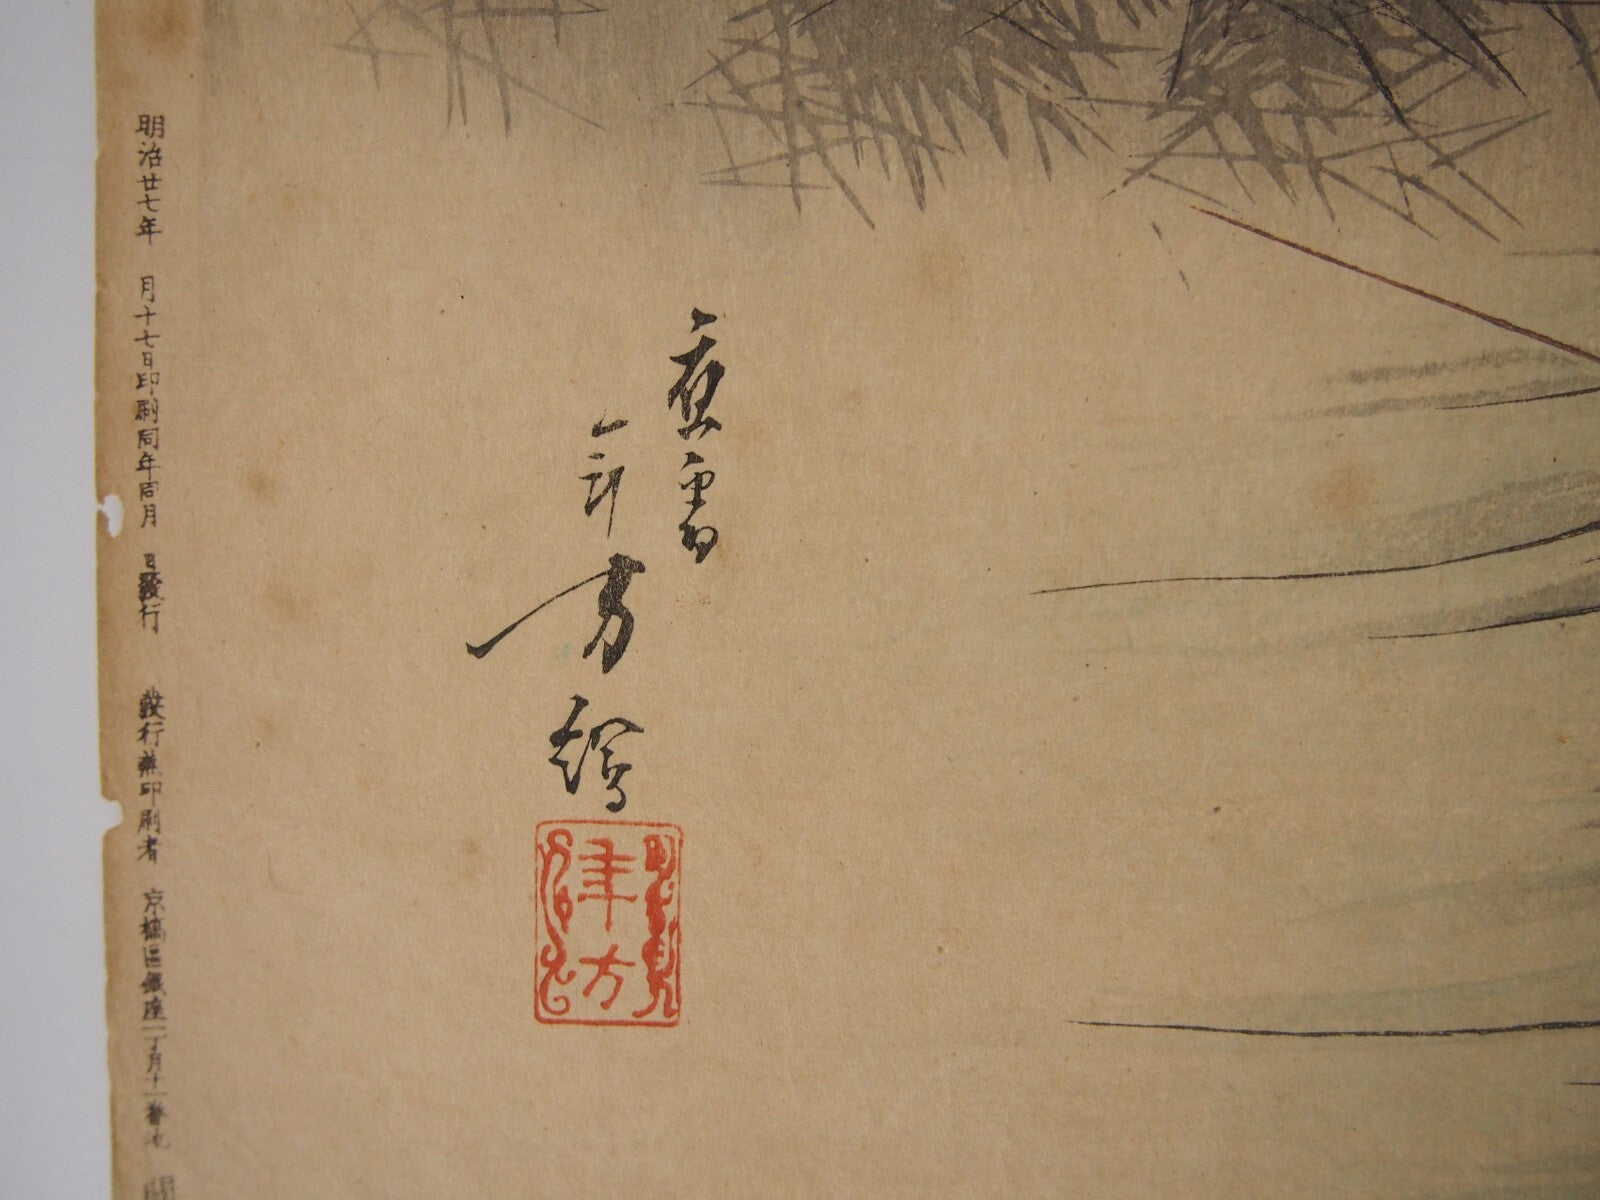 應雪
年方繪
年方
明治廿七年 月十七日印刷同年同月 日發行 發行兼印刷者 京橋區銀座一丁目十一番地 關